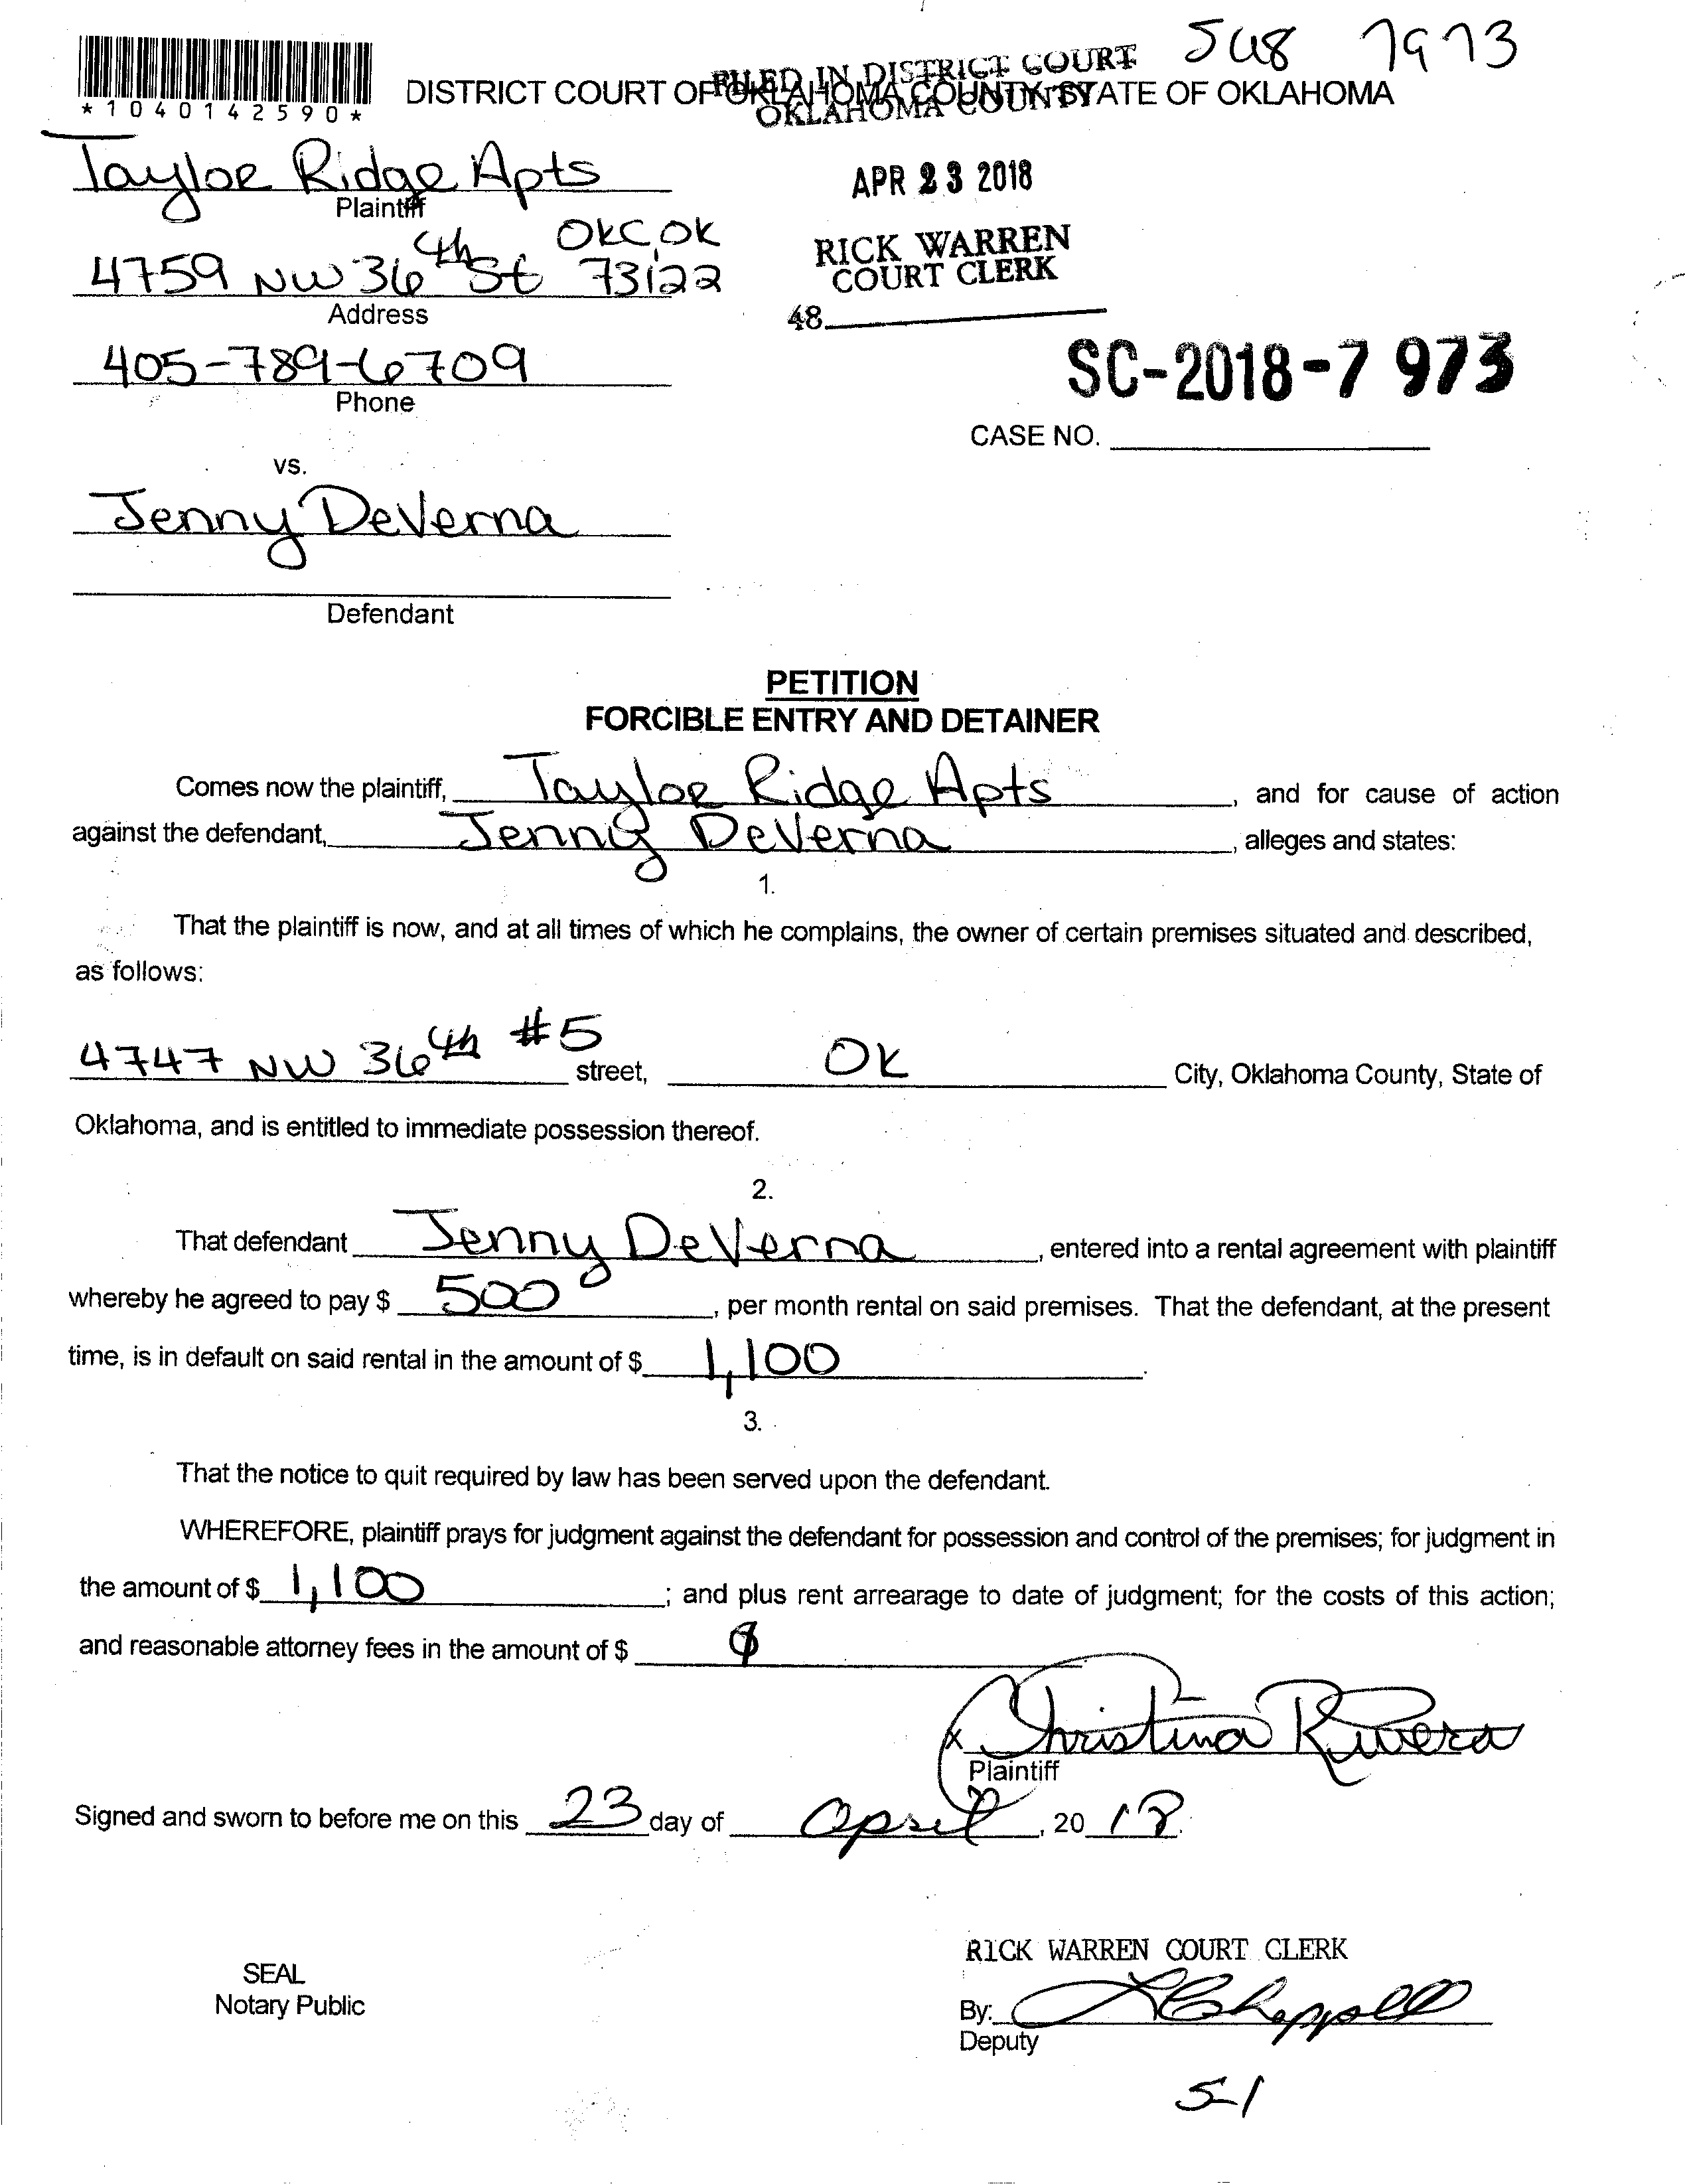 548 7973
*1040142590*
DISTRICT COURT OF OKLAHOMA COUNTY STATE OF OKLAHOMA
FILED IN DISTRICT COURT
OKLAHOMA COUNTY
Taylor Ridge Apts
Plaintiff
APR 23 2018
OKC, OK
4759 NW 36th St 73122
Address
RICK WARREN
COURT CLERK
48
405-789-6709
Phone
SC-2018-7 973
CASE NO.
vs.
Jenny DeVerna
Defendant
PETITION
FORCIBLE ENTRY AND DETAINER
Comes now the plaintiff, Taylor Ridge Apts, and for cause of action
against the defendant, Jenny DeVerna, alleges and states:
1.
That the plaintiff is now, and at all times of which he complains, the owner of certain premises situated and described,
as follows:
4747 NW 36th #5 street, OK City, Oklahoma County, State of
Oklahoma, and is entitled to immediate possession thereof.
2.
That defendant Jenny DeVerna, entered into a rental agreement with plaintiff
whereby he agreed to pay $ 500, per month rental on said premises. That the defendant, at the present
time, is in default on said rental in the amount of $ 1,100.
3.
That the notice to quit required by law has been served upon the defendant.
WHEREFORE, plaintiff prays for judgment against the defendant for possession and control of the premises; for judgment in
the amount of $ 1,100; and plus rent arrearage to date of judgment; for the costs of this action;
and reasonable attorney fees in the amount of $
x Christina Rivera
Plaintiff
Signed and sworn to before me on this 23 day of April, 20 18.
RICK WARREN COURT CLERK
SEAL
Notary Public
By: L Chappell
Deputy
5-1